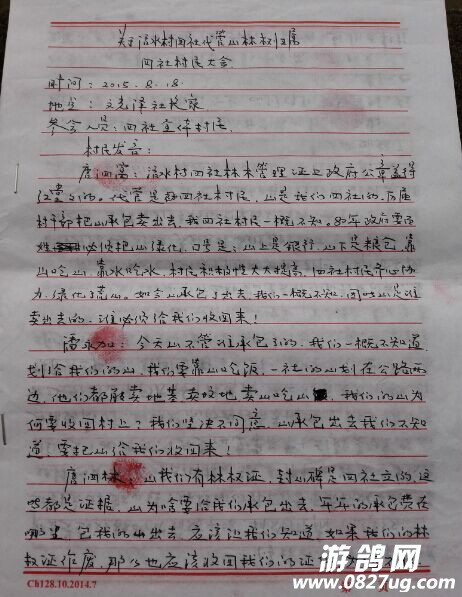 关于流水村四社代管山林权归属
四社村民大会
时间：2015.8.18.
地点：文克泽社长家
参会人员：四社全体村民.
村民发言：
唐洄富：流水村四社林木管理证上政府公章盖得
红堂堂的。代管是四社村民，山是我们四社的，历届
村干部把山承包卖出去，我四社村民一概不知。80年政府要百
姓必须把山绿化，口号是：山上是银行，山下是粮仓，靠
山吃山，靠水吃水，村民积极性大大提高，四社村民齐心协
力，绿化了荒山。如今山承包了出去，我们一概不知，同时山是谁
卖出去的，谁必须给我们收回来！
今天山不管谁承包了的，我们一概不知道，
划给我们的山，我们要靠山吃饭，一社的山划在公路两
边，他们都能卖地基卖好地卖山吃山，我们的山为
何要收回村上？我们坚决不同意，山承包出去我们不知
道，要把山给我们收回来！
唐洄林：山我们有林权证，封山碑是四社立的，这
些都是证据，山为啥要给我们承包出去，年年的承包费在
哪里，包我们的山出去，应该让我们知道，如果我们的林
权证作废，那么也应该收回我们的证
Ch128.10.2014.7
游鸽网
www.0827ug.com